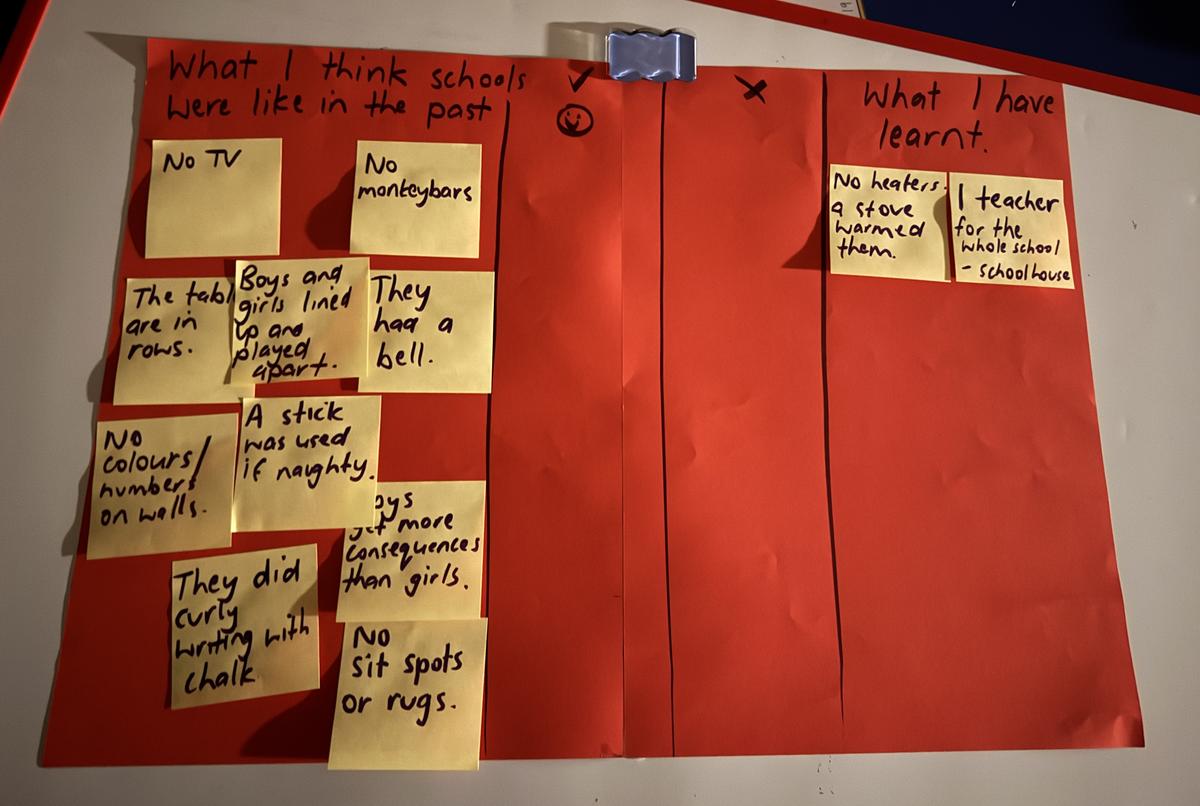 What I think schools
were like in the past
✓
✗
What I have
learnt.
No TV
No
monkeybars
The tabl
are in
rows.
Boys and
girls lined
up and
played
apart.
They
had a
bell.
No
colours/
numbers
on walls.
A stick
was used
if naughty.
oys
get more
consequences
than girls.
They did
curly
writing with
chalk
No
sit spots
or rugs.
No heaters.
a stove
warmed
them.
1 teacher
for the
whole school
- schoolhouse